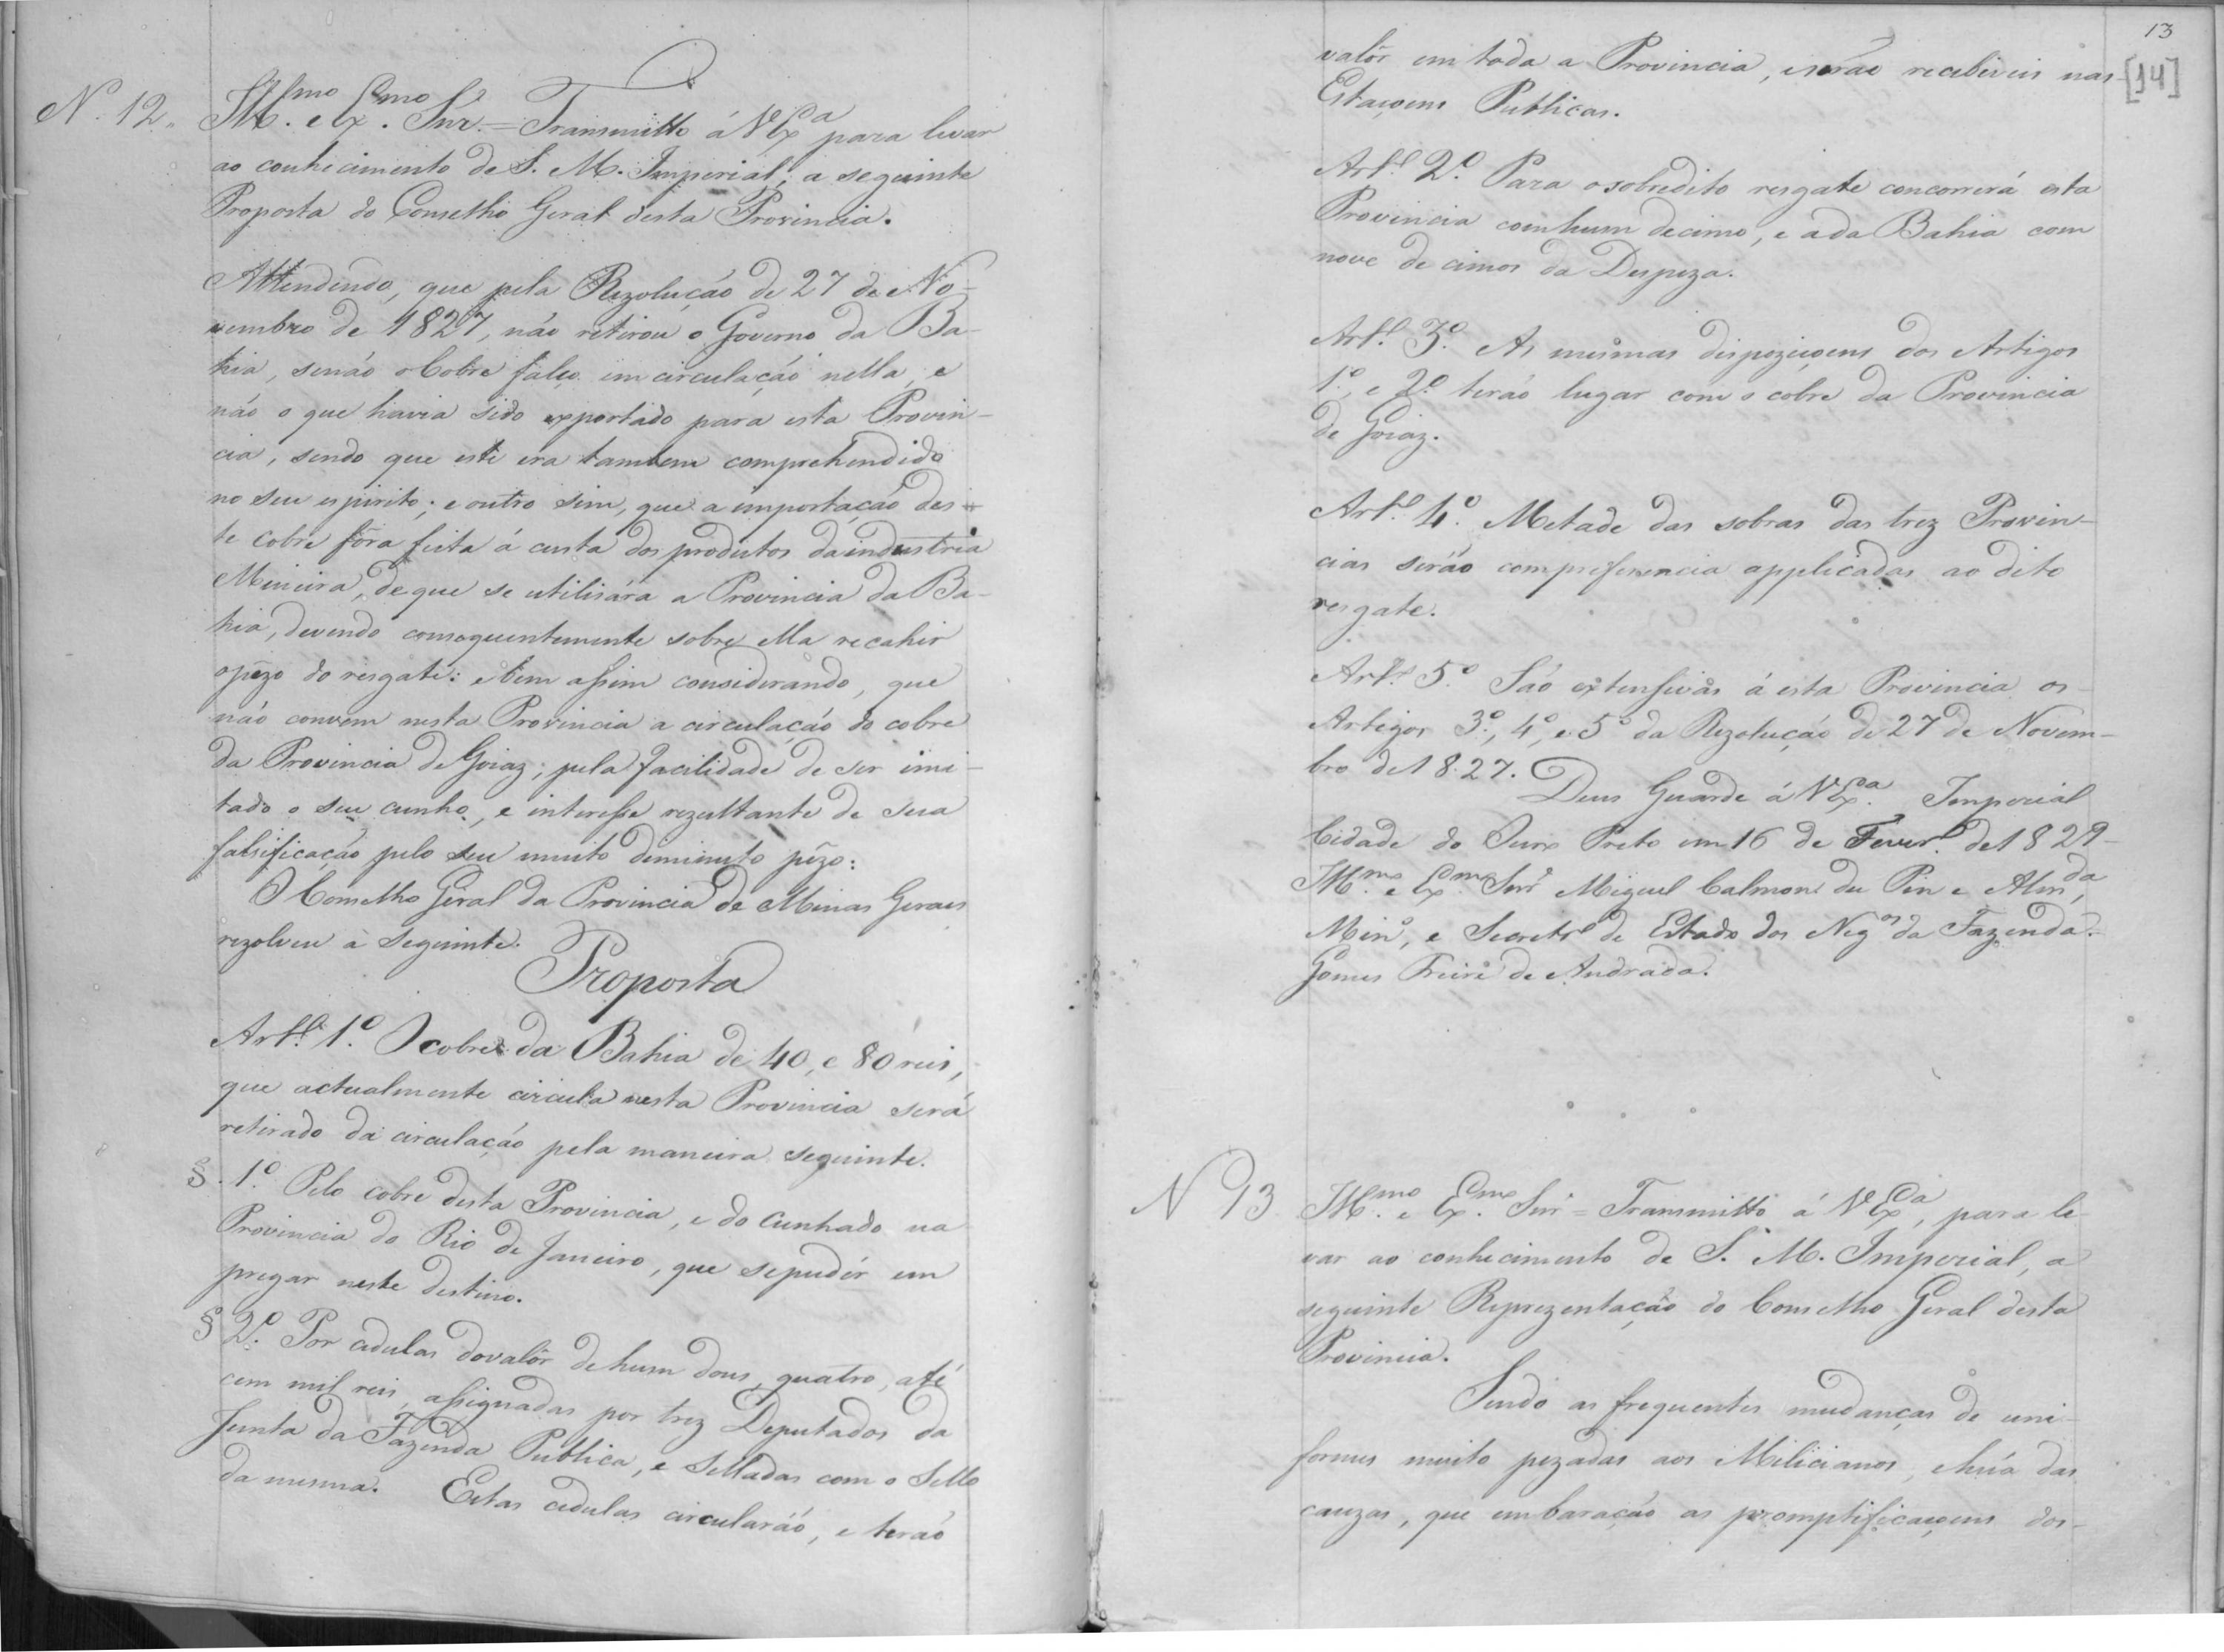 N.º 12. Ill.mo e Ex.mo Snr. = Transmitto á V Ex.a para levar
ao conhecimento de S. M. Imperial, a seguinte
Proposta do Conselho Geral desta Provincia.
Attendendo, que pela Rezolução de 27 de No-
vembro de 1827, não retirou o Governo da Ba-
hia, senão o Cobre falço em circulação nella, e
não o que havia sido exportado para esta Provin-
cia, sendo que este era tambem comprehendido
no seu espirito; e outro sim, que a importação des-
te cobre fôra feita á custa dos produtos da industria
Mineira, de que se utilisára a Provincia da Ba-
hia, devendo consequentemente sobre ella recahir
o pêzo do resgate: e bem assim considerando, que
não convem nesta Provincia a circulação do cobre
da Provincia de Goiaz, pela facilidade de ser imi-
tado o seu cunho, e interesse rezultante de sua
falsificação pelo seu muito diminuto pêzo:
O Conselho Geral da Provincia de Minas Geraes
rezolveu a seguinte.
Proposta
Art.º 1.º O cobre da Bahia de 40, e 80 reis,
que actualmente circula nesta Provincia será
retirado da circulação pela maneira seguinte.
§ 1.º Pelo cobre desta Provincia, e do cunhado na
Provincia do Rio de Janeiro, que se pudér em
pregar neste destino.
§ 2.º Por cedulas do valôr de hum dous, quatro, até
cem mil reis, assignadas por trez Deputados da
Junta da Fazenda Publica, e selladas com o Sello
da mesma. Estas cedulas circularáõ, e teráõ
13
[14]
valôr em toda a Provincia, e serão recebiveis nas
Estaçoens Publicas.
Art.º 2.º Para o sobredito resgate concorrerá esta
Provincia com hum decimo, e a da Bahia com
nove decimos da Despeza.
Art.º 3.º As mesmas dispoziçoens dos Artigos
1.º, e 2.º terão lugar com o cobre da Provincia
de Goiaz.
Art.º 4.º Metade das sobras das trez Provin-
cias serão com preferencia applicadas ao dito
resgate.
Art.º 5.º São extensivas á esta Provincia os
Artigos 3.º, 4.º, e 5.º da Rezolução de 27 de Novem-
bro de 1827. Deus Guarde á V Ex.a Imperial
Cidade do Ouro Preto em 16 de Fever.º de 1829-
Ill.mo e Ex.mo Snr. Miguel Calmon du Pin e Almda,
Min.º, e Secretr.º de Estado dos Neg.os da Fazenda.-
Gomes Freire de Andrada.
N 13. Ill.mo e Ex.mo Snr = Transmitto á V Ex.a, para le
var ao conhecimento de S. M. Imperial, a
seguinte Reprezentação do Conselho Geral desta
Provincia.
Sendo as frequentes mudanças de uni-
formes muito pezadas aos Milicianos, e huã das
cauzas, que embaração as promptificaçoens dos-